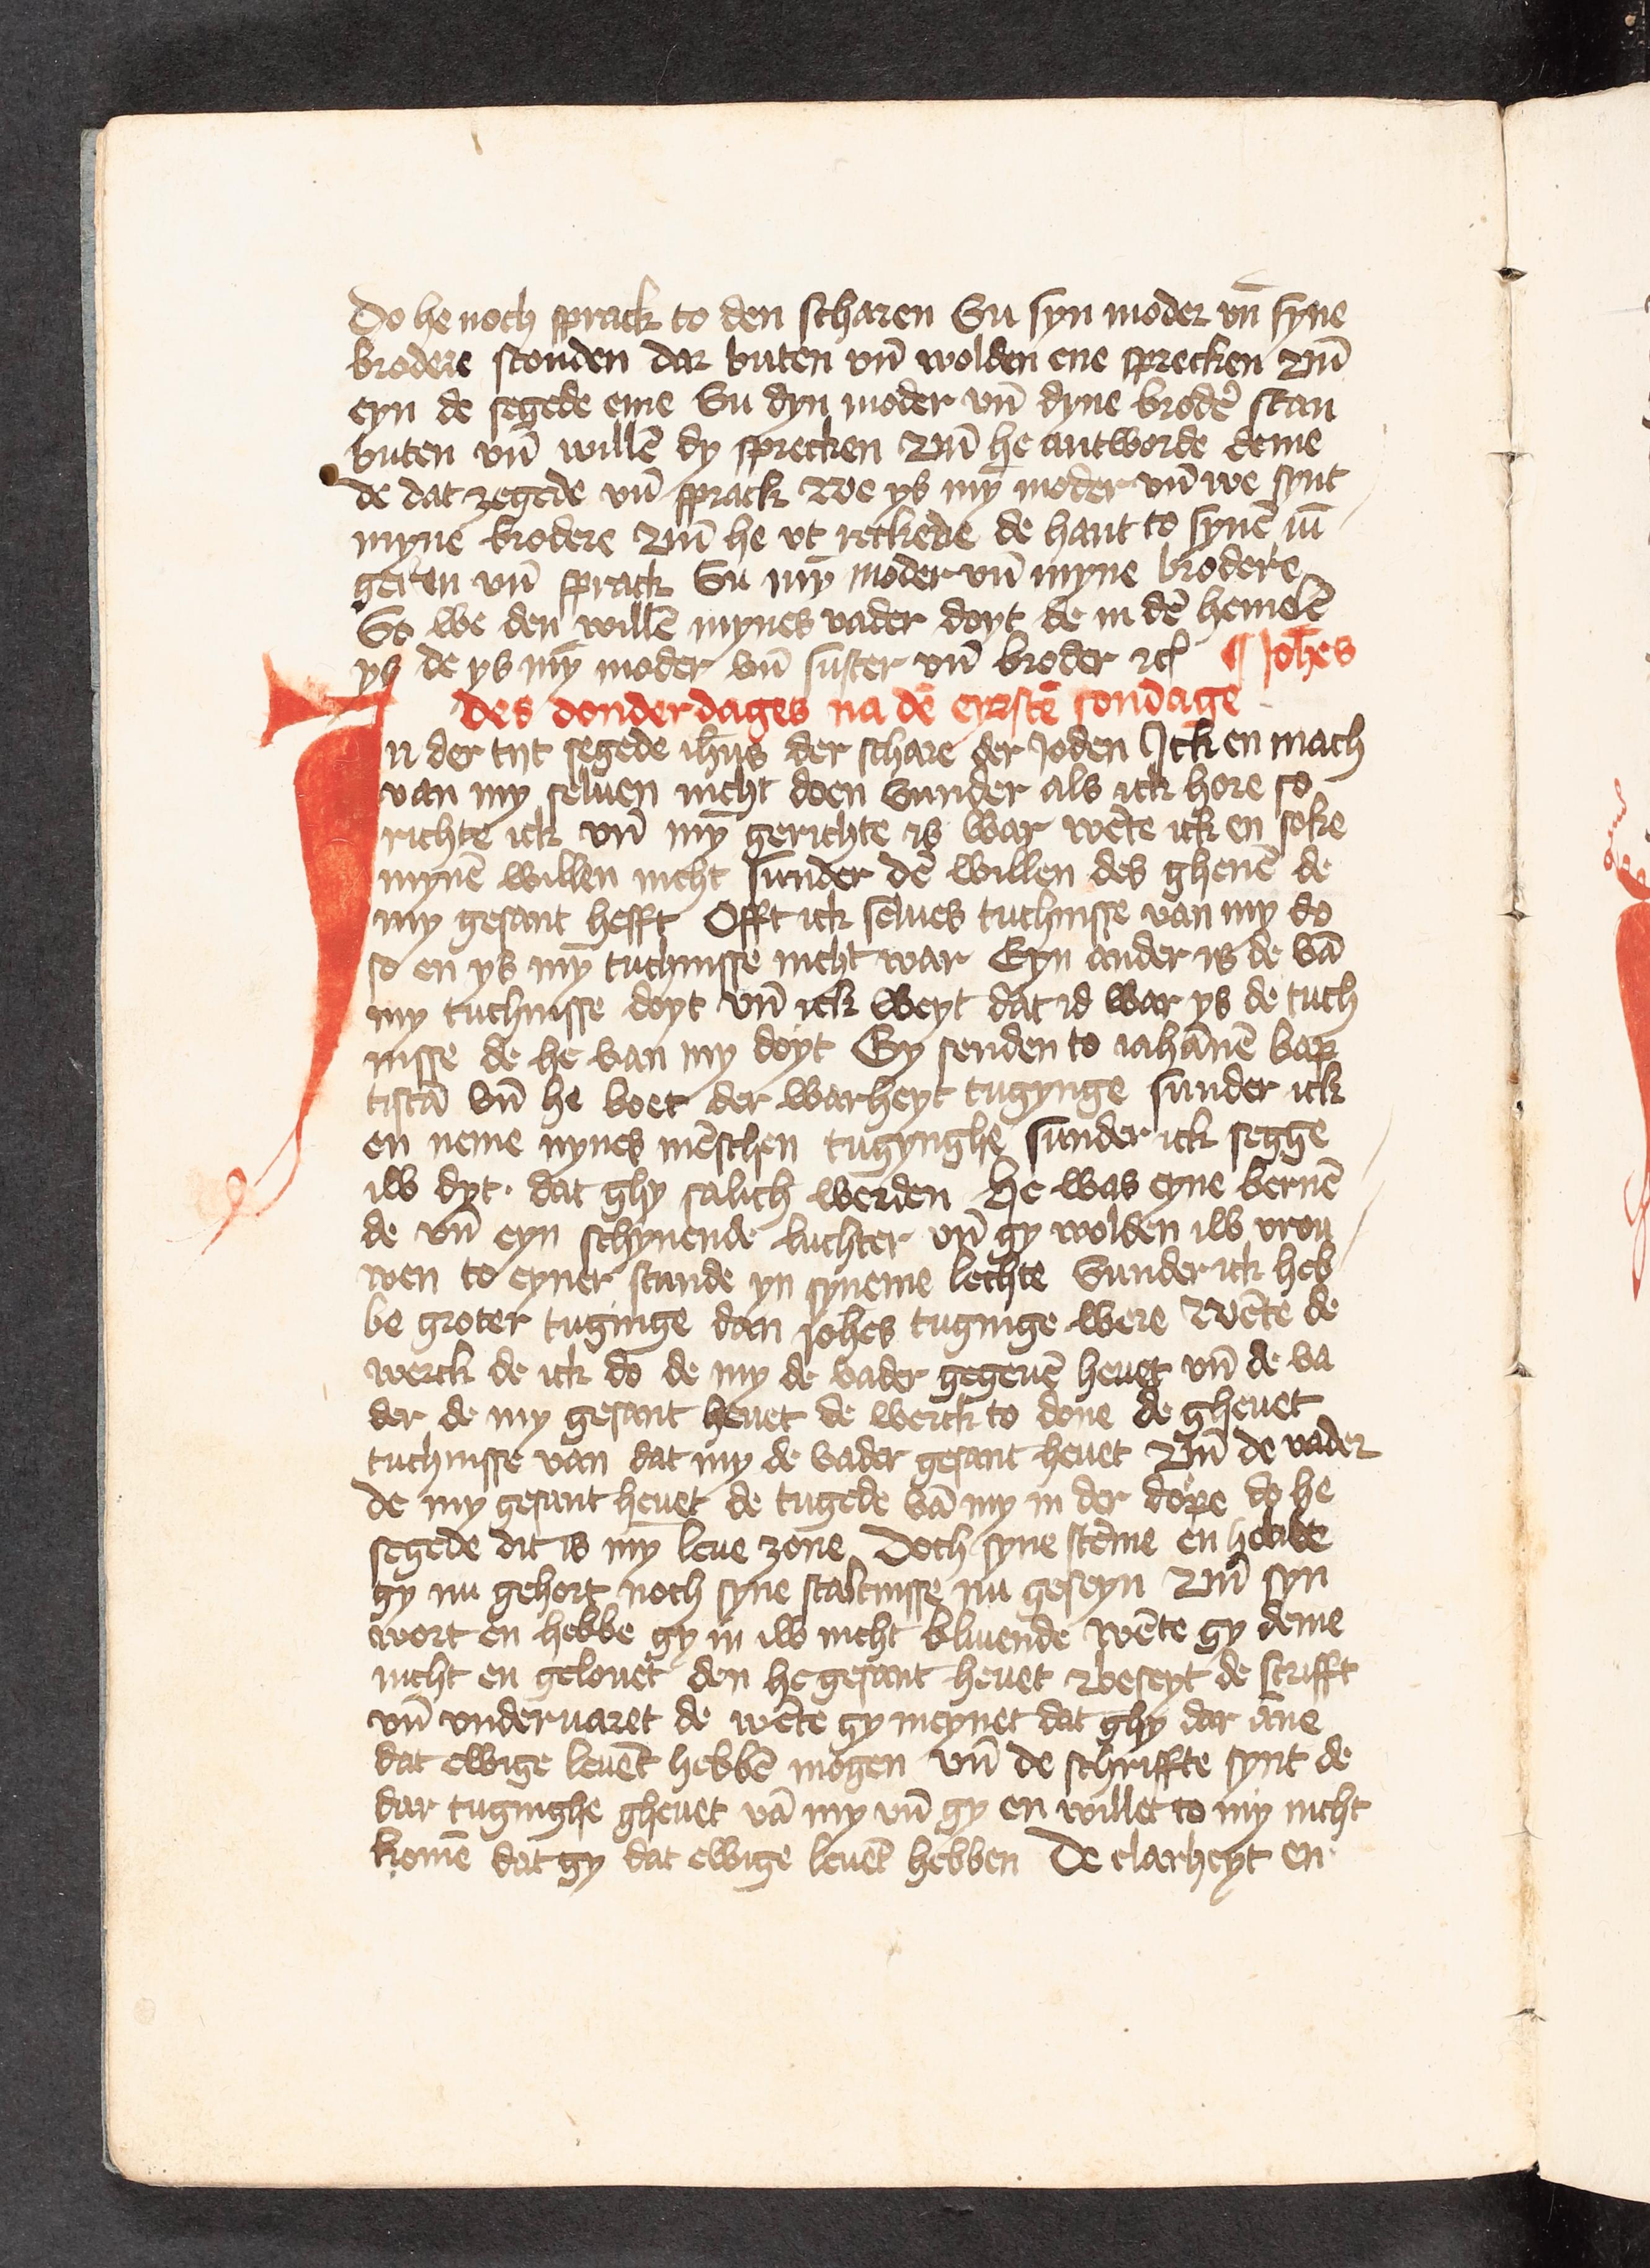 Do he noch sprack to den scharen Su syn moder vn̄ syne
brodere stonden dar buten vn̄ wolden ene sprecken Vn̄
eyn de segede eme Su dyn moder vn̄ dyne brod̓ stan
buten vn̄ willē dy sprecken Vn̄ he antworde deme
de dat zegede vn̄ sprack We ys mȳ moder vn̄ we synt
myne brodere Vn̄ he vt reckede de hant to synē iū
geren vn̄ sprack Su mȳ moder vn̄ myne brodere
So we den willē mynes vader doyt de in dē hemelē
ys de ys mȳ moder vn̄ suster vn̄ broder ⁊c̄ ¶ Joh̄es
des donderdages na dē eyrstē sondage
In der tijt segede ih̄us der schare der Joden Ick en mach
van my seluen nicht doen Sunder als ick hore so
richte ick vn̄ mȳ gerichte is war wēte ick en soke
mynē willen nicht sunder dē willen des ghenē de
my gesant hefft Offt ick selues tuchnisse van my do
so en ys mȳ tuchnisse nicht war Eyn ander is de vā
my tuchnisse doyt vn̄ ick weyt dat id war ys de tuch
nisse de he van my doyt Gy senden to iahānē bap
tistā vn̄ he boet der warheyt tugynge sunder ick
en neme nynes mēschen tugynghe sunder ick segge
iw dyt. dat ghy salich werden He was eyne bernē
de vn̄ eyn schynende luchter vn̄ gy wolden iw vrou
wen to eyner stunde yn syneme lechte Sunder ick heb
be groter tuginge dan joh̄es tuginge were Wēte de
werck de ick do de my de vader gegeuē heuet vn̄ de va
der de my gesant heuet de werck to done de gheuet
tuchnisse van dat my de vader gesant heuet Vn̄ de vader
de my gesant heuet de tugede vā my in der dope do he
segede dit is mȳ leue zone Doch syne stēme en hebbe
gy nu gehort noch syne staltnisse nu geseyn Vn̄ syn
wort en hebbe gy in iw nicht bliuende wēte gy deme
nicht en gelouet den he gesant heuet Beseyt de scrifft
vn̄ vnderuaret de wēte gy meynet dat ghy dar āne
dat ewige leuēt hebbē mogen vn̄ de schriffte synt de
dar tuginghe gheuet vā my vn̄ gy en willet to my nicht
komē dat gy dat ewige leuēt hebben De clarheyt en